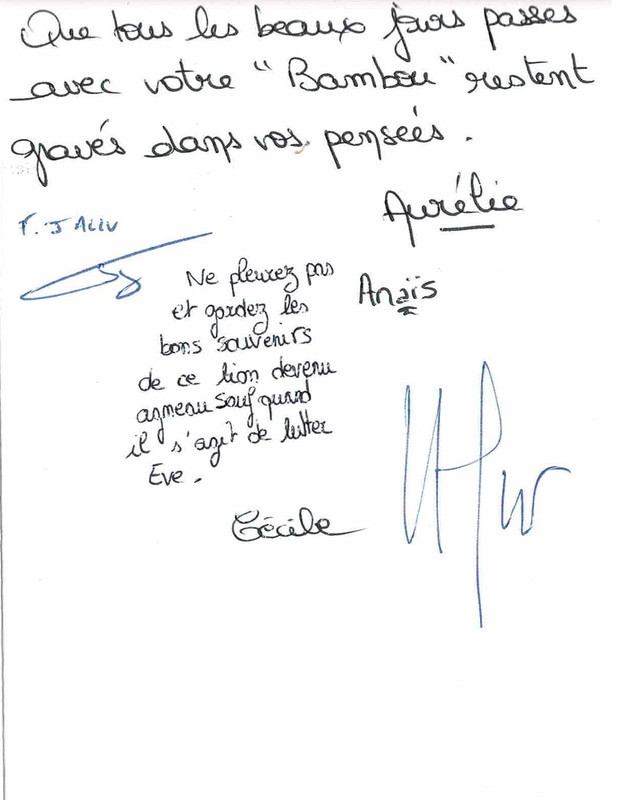 Que tous les beaux jours passes
avec votre "Bambou" restent
gravés dans vos pensées.
Aurélie
Ne pleurez pas
et gardez les
bons souvenirs
de ce lion devenu
agneau sauf quand
il s'agit de lutter
Eve.
Anaïs
Cécile